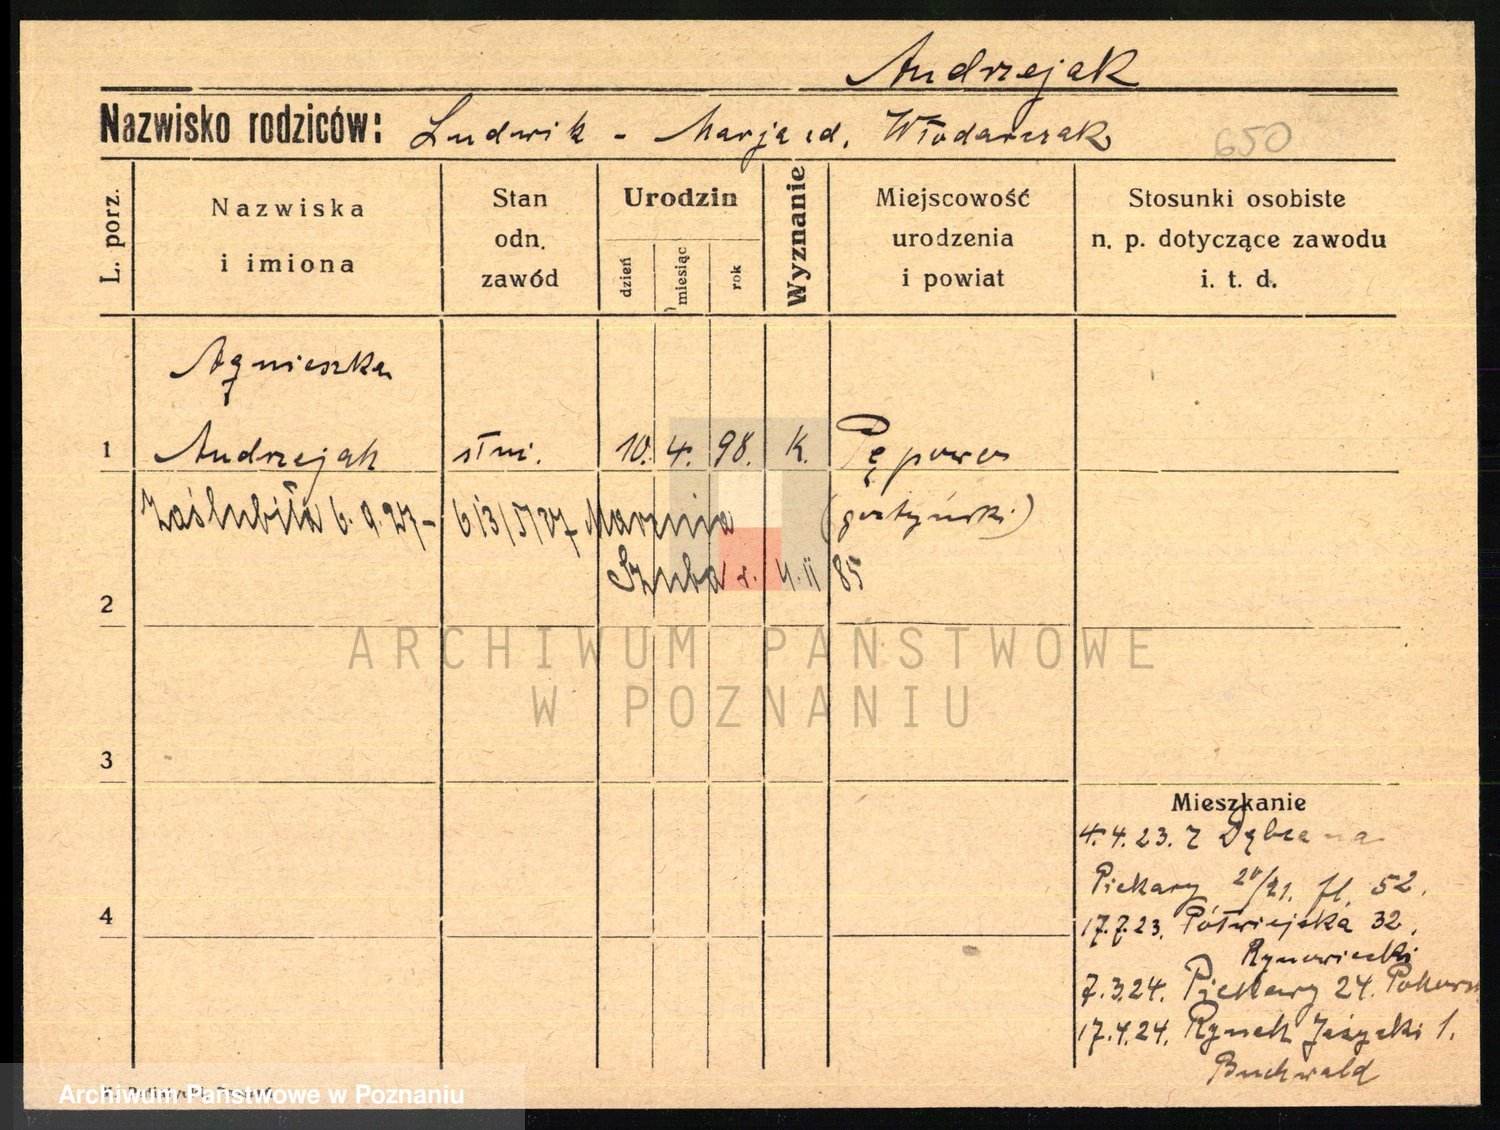 Andrzejak
Nazwisko rodziców: Ludwik - Marja zd. Włodarczak
650
L. porz.
Nazwiska
i imiona
Stan
odn.
zawód
Urodzin
dzień
miesiąc
rok
Wyznanie
Miejscowość
urodzenia
i powiat
Stosunki osobiste
n. p. dotyczące zawodu
i. t. d.
Agnieszka
1 Andrzejak słui. 10. 4. 98. K. Pępowo
Zaślubiła 6.9.27 - 613/5/27 Marcina (gostyński)
Szuba r. 4. 11 85
2
ARCHIWUM PAŃSTWOWE
W POZNANIU
3
Mieszkanie
4.4.23. z
Piekary 20/21. fl. 52.
4
17.7.23. Półwiejska 32.
Rynowiecki
7.3.24. Piekary 24.
17.4.24. Rynek Jeżycki 1.
Buchwald
Archiwum Państwowe w Poznaniu